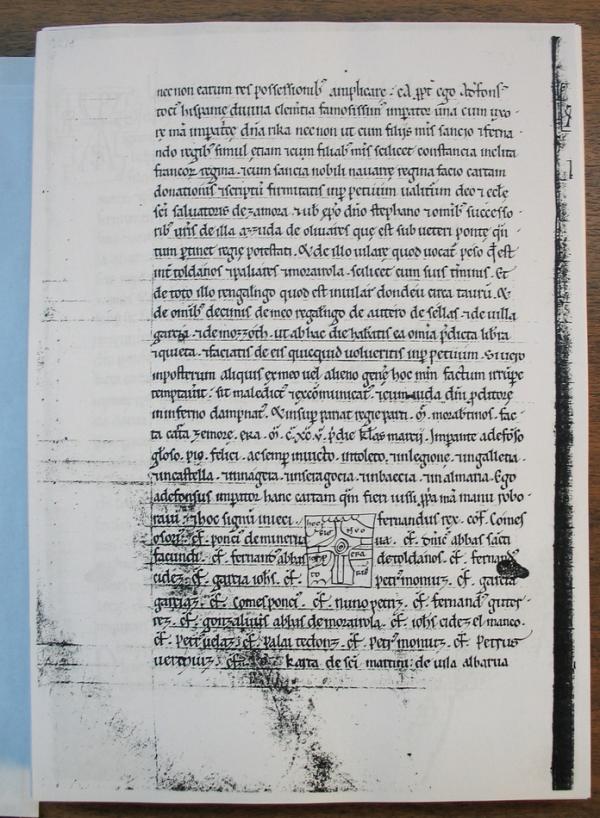 nec non earum res possessionibꝰ amplicare · Eapropt̄ ego Adefons
toci hispanie divina clem̄tia famosissimꝰ imꝑator una cum uxo
re mā imꝑatͥce dn̄a rika nec non ⁊ cum filijs mīs sancio ⁊ ferna
ndo regibꝰ simul etiam ⁊ cum filiabꝰ mīs scilicet constancia inclita
francoꝝ regina · ⁊ cum sancia nobili navarre regina facio cartam
donationis ⁊ scriptū firmitatis inꝑpetuum valiturū deo ⁊ ecl̄e
sc̄i salvatoris de zamora · ⁊ vob̄ ep̄o dn̄o stephano ⁊ omibꝰ successo
ribꝰ vr̄is de illa azzuda de olivares que est sub veteri ponte q̄n
tum ꝑtinet regie potestati · Et de illo vilare quod vocat̄ peso q̄d est
int̄ toldanos ⁊ paliares ⁊ morairola · scilicet cum suis t̄minis · Et
de toto illo rengalingo quod est in vilar dondeu circa taurū · Et
de omibꝰ decimis de meo regalengo de autero de sellas · ⁊ de villa
garcia · ⁊ de mozzoth · ut ab hac die habeatis ea om̄ia p̄dicta libra
⁊ quieta · ⁊ faciatis de eis quicquid volueritis inꝑpetuum · Si vero
inposterum aliquis ex meo vel alieno gen̄e hoc meū factum irrūpe
temptavit̄ · sit maledictꝰ ⁊ excōmunicatꝰ · ⁊ cum iuda dn̄i ꝓditore
in inferno dampnatꝰ · Et insuꝑ pariat regie parti · ꝏ · morabitinos · fac
ta carta zemore · era · ꝏ · C · XC · V · p̄die klas̄ marcii · Imꝑante adefōso
glōso · pio · felici · ac semꝑ invicto · in toleto · ⁊ in legione · ⁊ in galletia ·
⁊ in castella · ⁊ in nagera · ⁊ in seragocia · ⁊ in baecia · ⁊ in almaria · Ego
adefonsus imꝑator hanc cartam q̄m fieri iussi ꝓpa mā manu robo
ravi · ⁊ hoc signū inieci · fernandus rex · cōf · Comes
osoriꝰ · cf̄ · ponci de minerva · cf̄ · abbas sācti
facundi · cf̄ · fernandꝰ abbas de toldanos · cf̄ · fernandꝰ
cidez · cf̄ · garcia ioh̄s · cf̄ · petrꝰ moniuz · cf̄ · garcia
garciaz · cf̄ · Comes poncꝰ · cf̄ · nuno petriz · cf̄ · fernandꝰ guter
rez · cf̄ · gonzalvius abbas de morairola · cf̄ · ioh̄s cidez el manco ·
cf̄ · petrꝰ udaz · cf̄ · palai tedoniz · cf̄ · petrꝰ moniuz · cf̄ · petrus
Karta de sc̄i martini de vila albarua